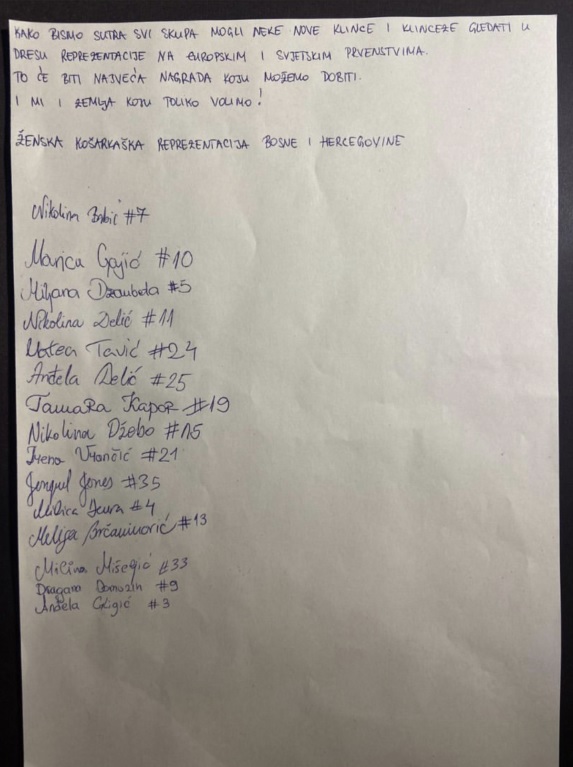 KAKO BISMO SUTRA SVI SKUPA MOGLI NEKE NOVE KLINCE I KLINCEZE GLEDATI U
DRESU REPREZENTACIJE NA EUROPSKIM I SVJETSKIM PRVENSTVIMA.
TO ĆE BITI NAJVEĆA NAGRADA KOJU MOŽEMO DOBITI.
I MI I ZEMLJA KOJU TOLIKO VOLIMO!
ŽENSKA KOŠARKAŠKA REPREZENTACIJA BOSNE I HERCEGOVINE
Nikolina Babić #7
Marica Gajić #10
Miljana Džombeta #5
Nikolina Delić #11
Matea Tavić #24
Anđela Delić #25
Tamara Kapor #19
Nikolina Džebo #15
Irena Vrančić #21
Jonquel Jones #35
Milica Deura #4
Melisa Brčaninović #13
#33
Dragana #9
Anđela #3